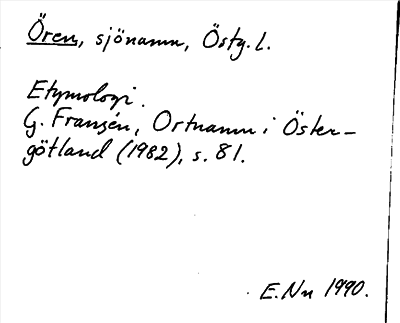 Ören, sjönamn, Östg. l.
Etymologi.
G. Franzén, Ortnamn i Öster-
götland (1982), s. 81.
E. Nn 1990.